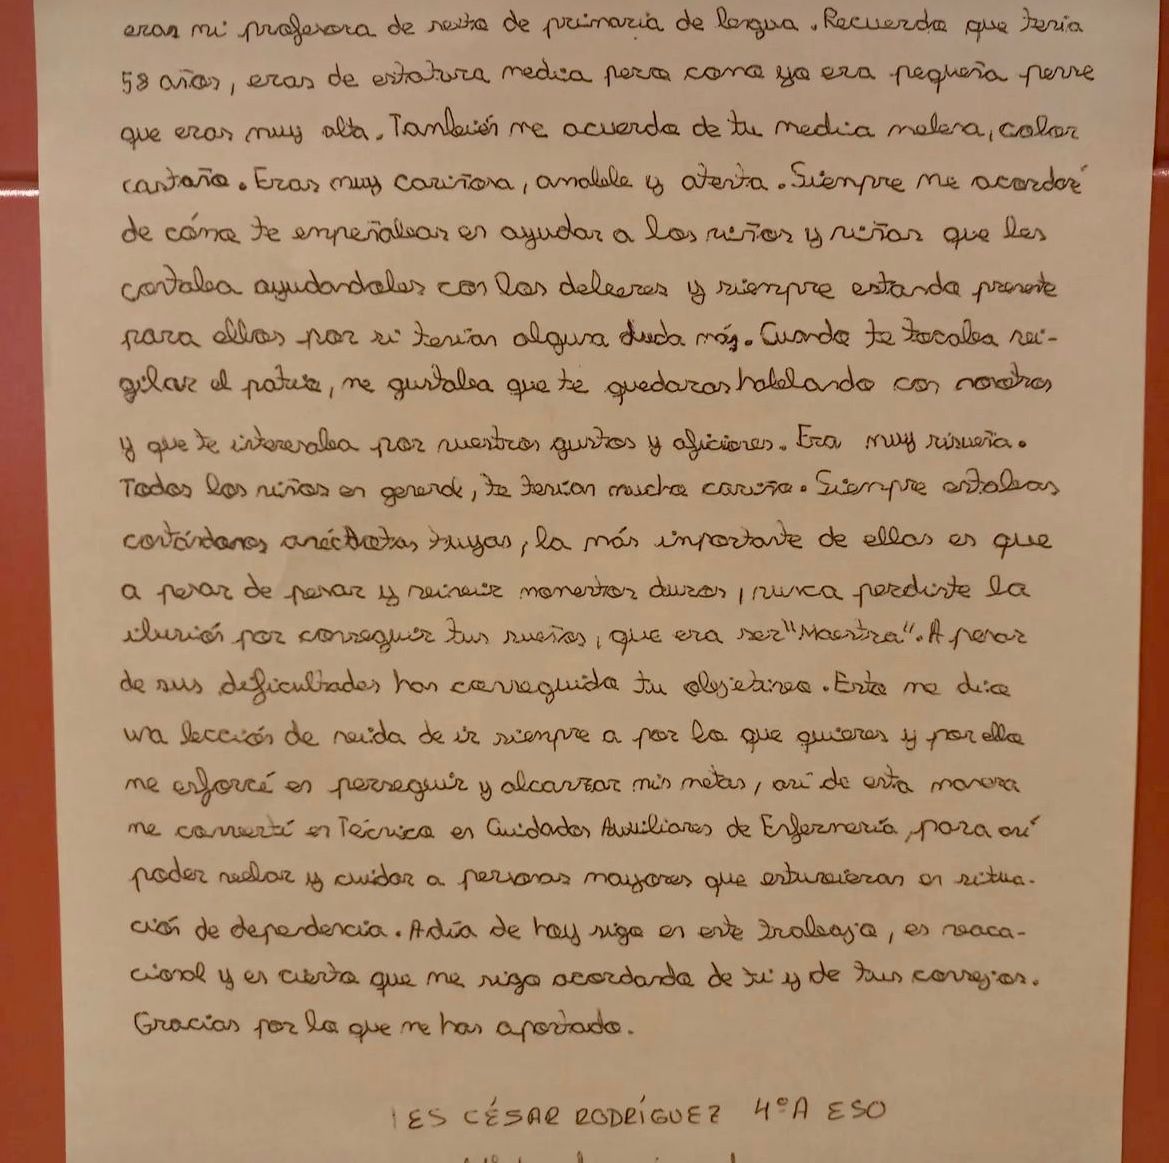 eras mi profesora de sexto de primaria de lengua. Recuerdo que tenía
58 años, eras de estatura media pero como yo era pequeña pense
que eras muy alta. También me acuerdo de tu media melena, color
castaño. Eras muy cariñosa, amable y atenta. Siempre me acordaré
de cómo te empeñabas en ayudar a los niños y niñas que les
costaba ayudandoles con los deberes y siempre estando presente
para ellos por si tenían alguna duda más. Cuando te tocaba vi-
gilar el patio, me gustaba que te quedaras hablando con nosotros
y que te interesaba por nuestros gustos y aficiones. Era muy risueña.
Todos los niños en general, te tenían mucho cariño. Siempre estabas
contándonos anécdotas tuyas, la más importante de ellas es que
a pesar de pesar y vivir momentos duros, nunca perdiste la
ilusión por conseguir tus sueños, que era ser "Maestra". A pesar
de sus deficultades has conseguido tu objetivo. Esto me dice
una lección de vida de ir siempre a por lo que quieres y por ello
me esforcé en perseguir y alcanzar mis metas, así de esta manera
me convertí en Técnico en Cuidados Auxiliares de Enfermería, para así
poder velar y cuidar a personas mayores que estuvieran en situa-
ción de dependencia. A día de hoy sigo en este trabajo, es voca-
cional y es cierto que me sigo acordando de ti y de tus consejos.
Gracias por lo que me has aportado.
IES CÉSAR RODRÍGUEZ 4ºA ESO